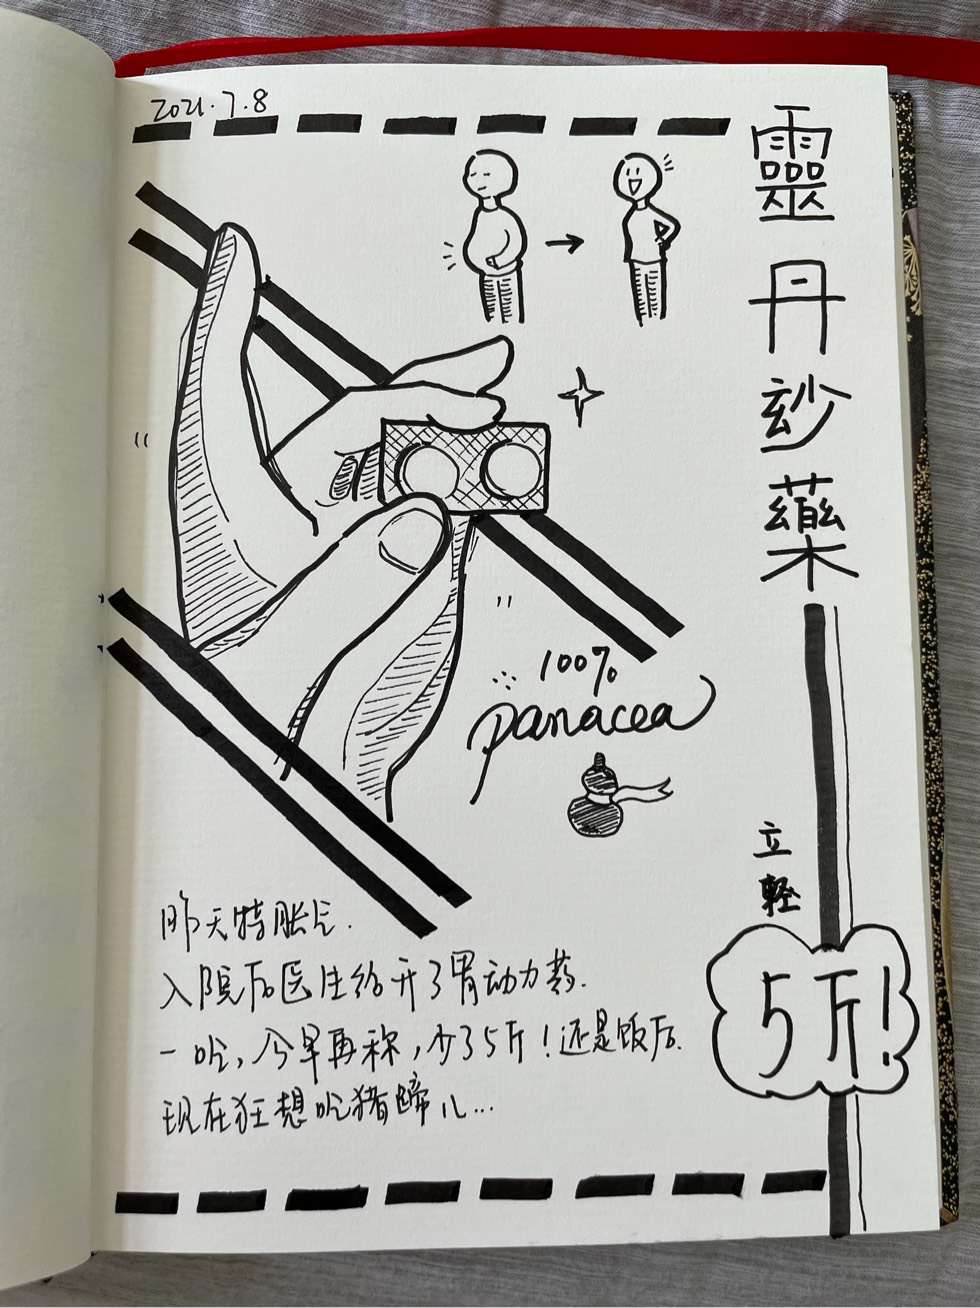 2021.7.8
靈丹妙藥
100%
panacea
立轻
5斤!
昨天特胀气.
入院后医生给开了胃动力药.
一吃,今早再称,少了5斤!还是饭后.
现在狂想吃猪蹄儿...